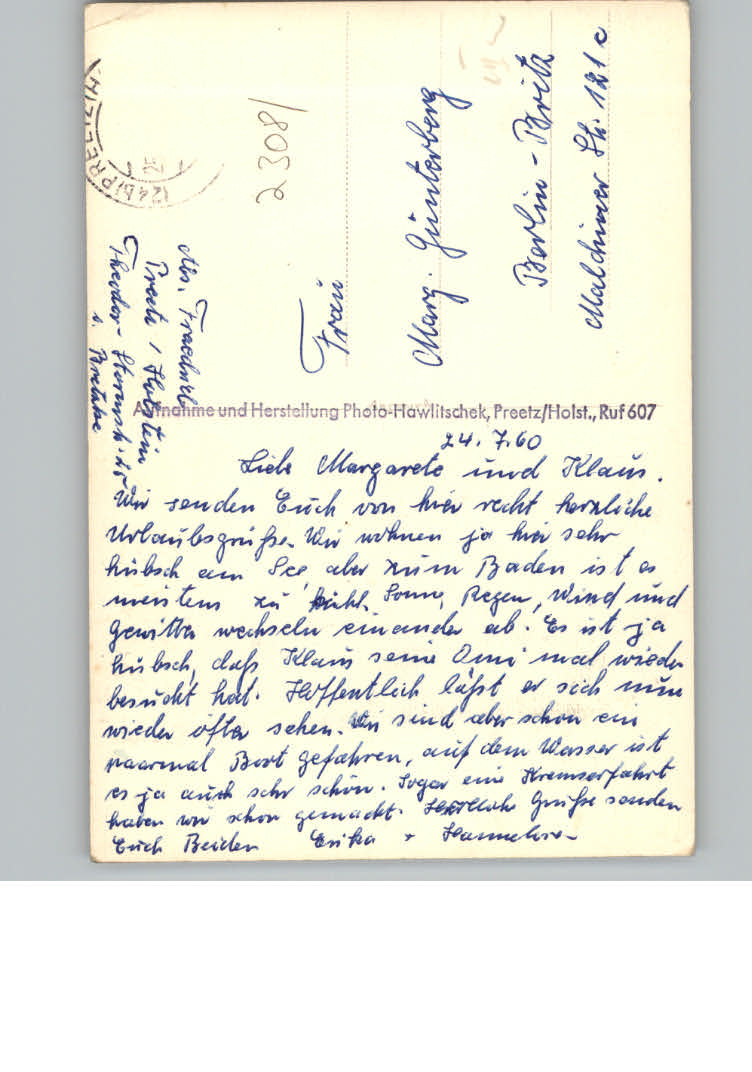 24. 7. 60
Liebe Margarete und Klaus.
Wir senden Euch von hier recht herzliche
Urlaubsgrüße. Wir wohnen ja hier sehr
hübsch am See, aber zum Baden ist es
meistens zu kühl. Sonne, Regen, Wind und
Gewitter wechseln einander ab. Es ist ja
hübsch, daß Klaus seine Omi mal wieder
besucht hat. Hoffentlich läßt er sich nun
wieder öfter sehen. Wir sind aber schon ein
paarmal Boot gefahren, auf dem Wasser ist
es ja auch sehr schön. Sogar eine Kremserfahrt
haben wir schon gemacht. Herzliche Grüße senden
Euch Beiden Erika + Hannelore
Aufnahme und Herstellung Photo-Hawlitschek, Preetz/Holst., Ruf 607
Abs.
Preetz / Holstein
Theodor-Stormstr. 25
b.
Frau
Marg. Günterberg
Berlin-Britz
Malchiner Str. 121c
2308/
(24b) PREETZ